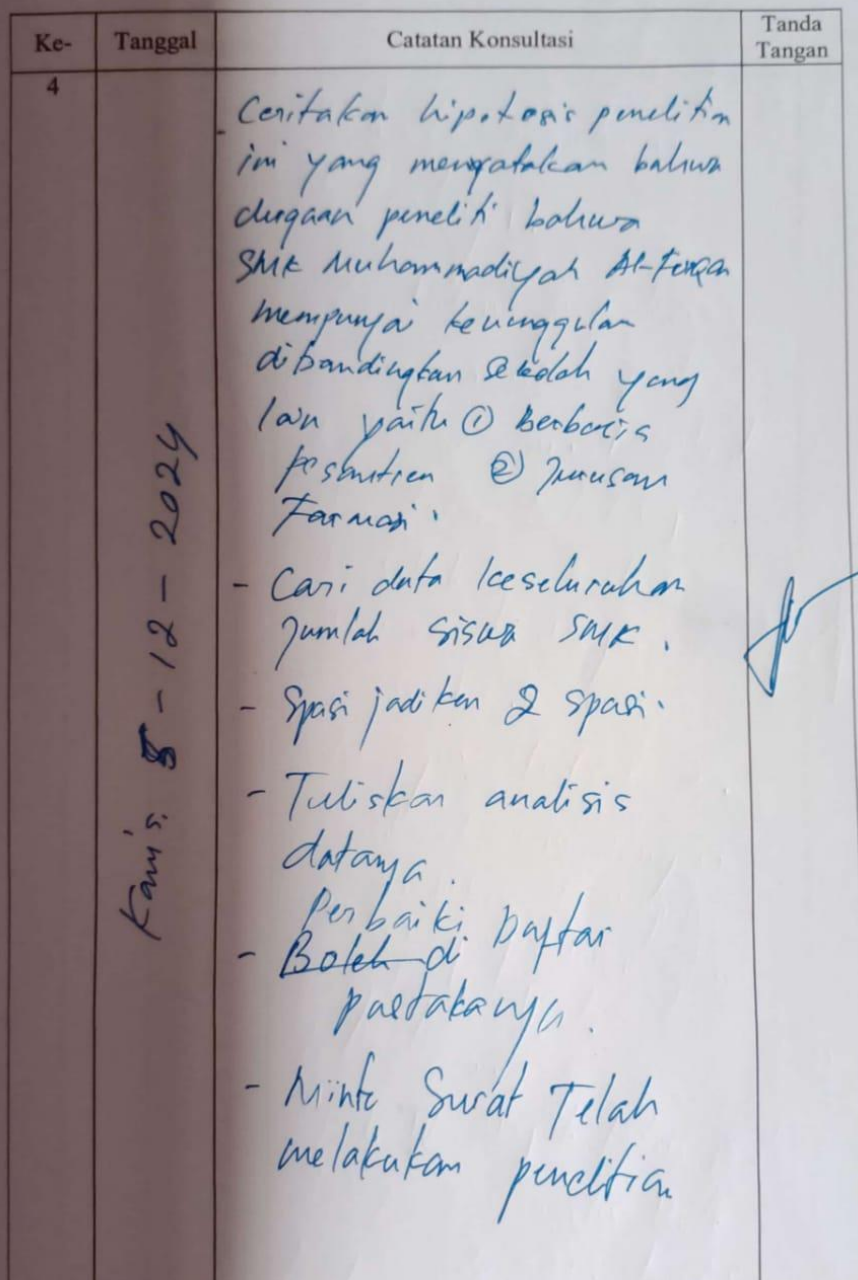 Ke- Tanggal Catatan Konsultasi Tanda Tangan
4
Kamis, 5 - 12 - 2024
- Ceritakan hipotesis penelitian
ini yang mengatakan bahwa
dugaan peneliti bahwa
SMK Muhammadiyah Al-Furqan
mempunyai keunggulan
dibandingkan sekolah yang
lain yaitu ① Berbasis
pesantren ② Jurusan
Farmasi.
- Cari data keseluruhan
Jumlah siswa SMK.
- Spasi jadikan 2 spasi.
- Tuliskan analisis
datanya.
Perbaiki Daftar
- Boleh di
pustakanya.
- Minta Surat Telah
melakukan penelitian